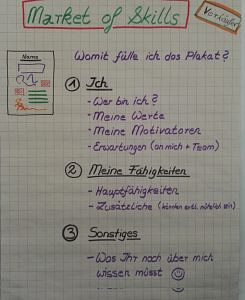 Market of Skills
Verkäufer
Name
Womit fülle ich das Plakat?
1 Ich
- Wer bin ich?
- Meine Werte
- Meine Motivatoren
- Erwartungen (an mich + Team)
2 Meine Fähigkeiten
- Hauptfähigkeiten
- Zusätzliche (könnten evtl. nützlich sein)
3 Sonstiges
- Was Ihr noch über mich
wissen müsst